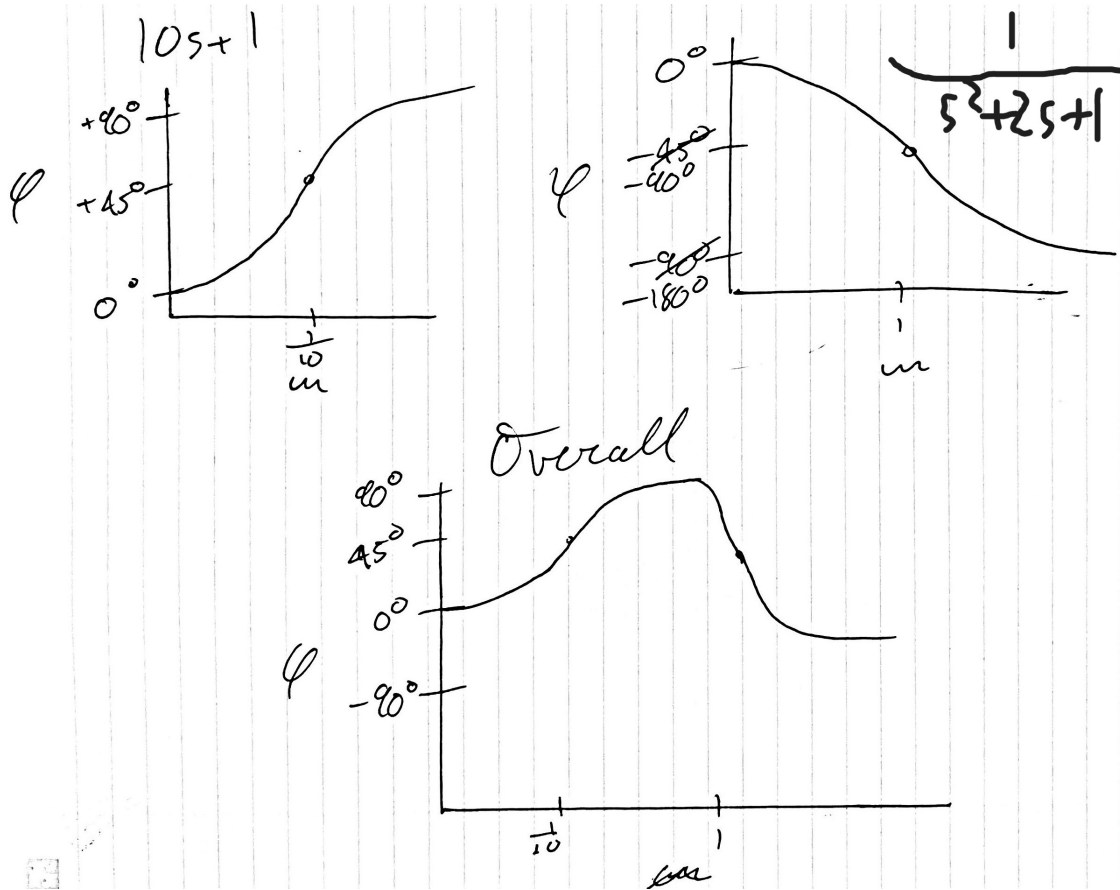 10s+1
+90°
φ
+45°
0°
1/10
ω
1
s²+2s+1
0°
φ
-45°
-90°
-90°
-180°
1
ω
Overall
90°
45°
0°
φ
-90°
1/10
1
ω